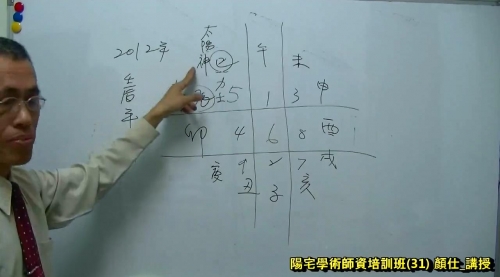 2012年
壬辰年
太陽神
巳 午 未
力士 5 1 3 申
卯 4 6 8 酉
寅 9 2 7 戌
丑 子 亥
陽宅學術師資培訓班(31) 顏仕_講授